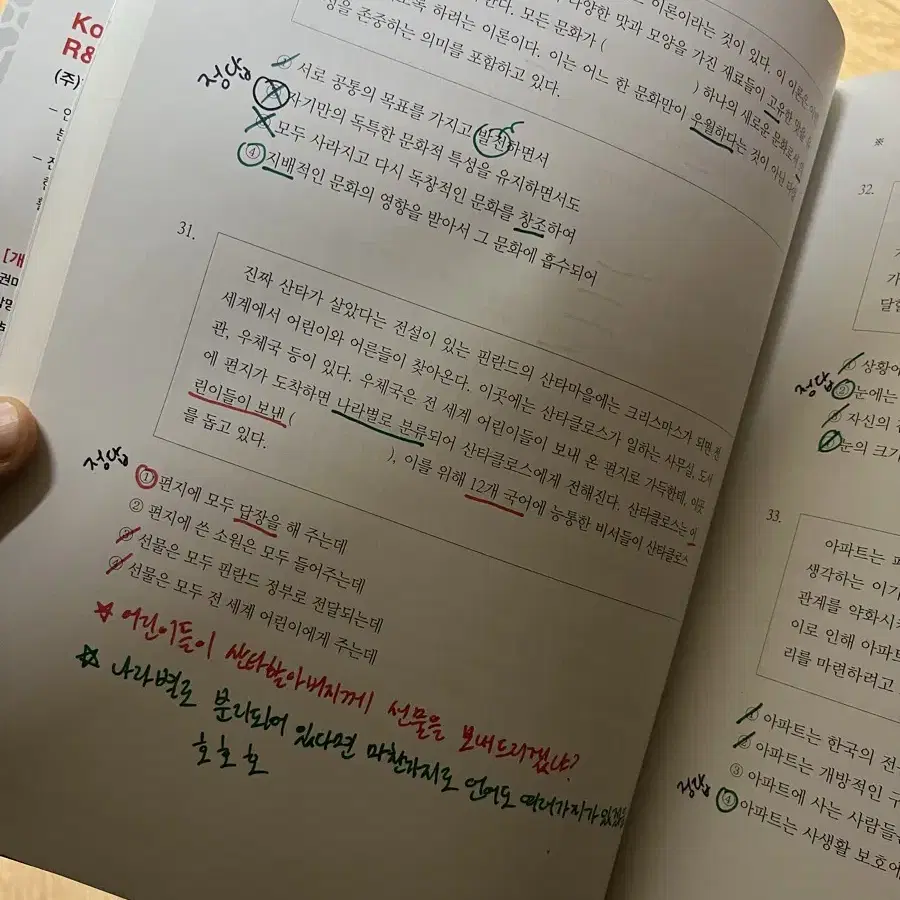 Ko
R&
(주)
[개
권미
이론이라는 것이 있다. 이 이론은
다양한 맛과 모양을 가진 재료들이 고유한 맛을
하려는 이론이다. 모든 문화가 (
) 하나의 새로운 문화로서
이는 어느 한 문화만이 우월하다는 것이 아닌
성을 존중하는 의미를 포함하고 있다.
정답
① 서로 공통의 목표를 가지고 발전하면서
② 자기만의 독특한 문화적 특성을 유지하면서도
③ 모두 사라지고 다시 독창적인 문화를 창조하여
④ 지배적인 문화의 영향을 받아서 그 문화에 흡수되어
31.
진짜 산타가 살았다는 전설이 있는 핀란드의 산타마을에는 크리스마스가 되면 전
세계에서 어린이와 어른들이 찾아온다. 이곳에는 산타클로스가 일하는 사무실, 도서
관, 우체국 등이 있다. 우체국은 전 세계 어린이들이 보내 온 편지로 가득한데, 이곳
에 편지가 도착하면 나라별로 분류되어 산타클로스에게 전해진다. 산타클로스는 어
린이들이 보낸 ( ), 이를 위해 12개 국어에 능통한 비서들이 산타클로스
를 돕고 있다.
정답
① 편지에 모두 답장을 해 주는데
② 편지에 쓴 소원은 모두 들어주는데
③ 선물은 모두 핀란드 정부로 전달되는데
④ 선물은 모두 전 세계 어린이에게 주는데
☆ 어린이들이 산타할아버지께 선물을 보내드리겠냐?
☆ 나라별로 분리되어 있다면 마찬가지로 언어도 여러가지가
호호호
※
32.
가
달
정답
① 상황에
② 눈에는
③ 자신의
④ 눈의 크기
33.
아파트는
생각하는 이기
관계를 약화시키
이로 인해 아파트
리를 마련하려고
정답
① 아파트는 한국의 전
② 아파트는 개방적인 구
③ 아파트에 사는 사람들은
④ 아파트는 사생활 보호에